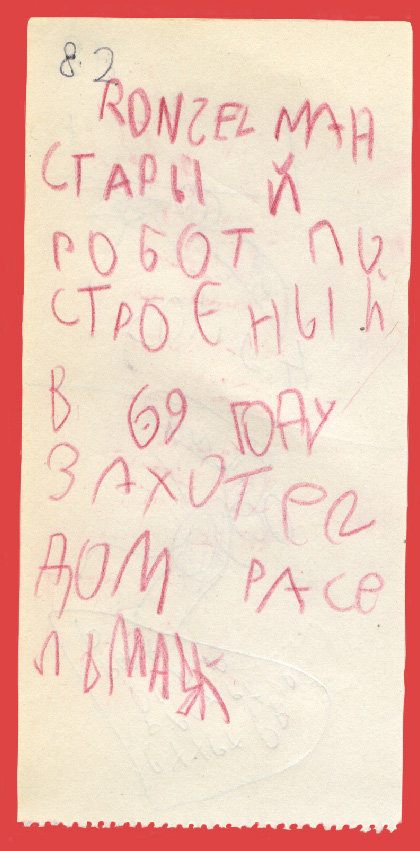 8.2
RONZEL МАН
СТАРЫ Й
РОБОТ ПО
СТРОЕНЫЙ
В 69 ГОДУ
ЗАХОТЕЛ
ДОМ РАСЕ